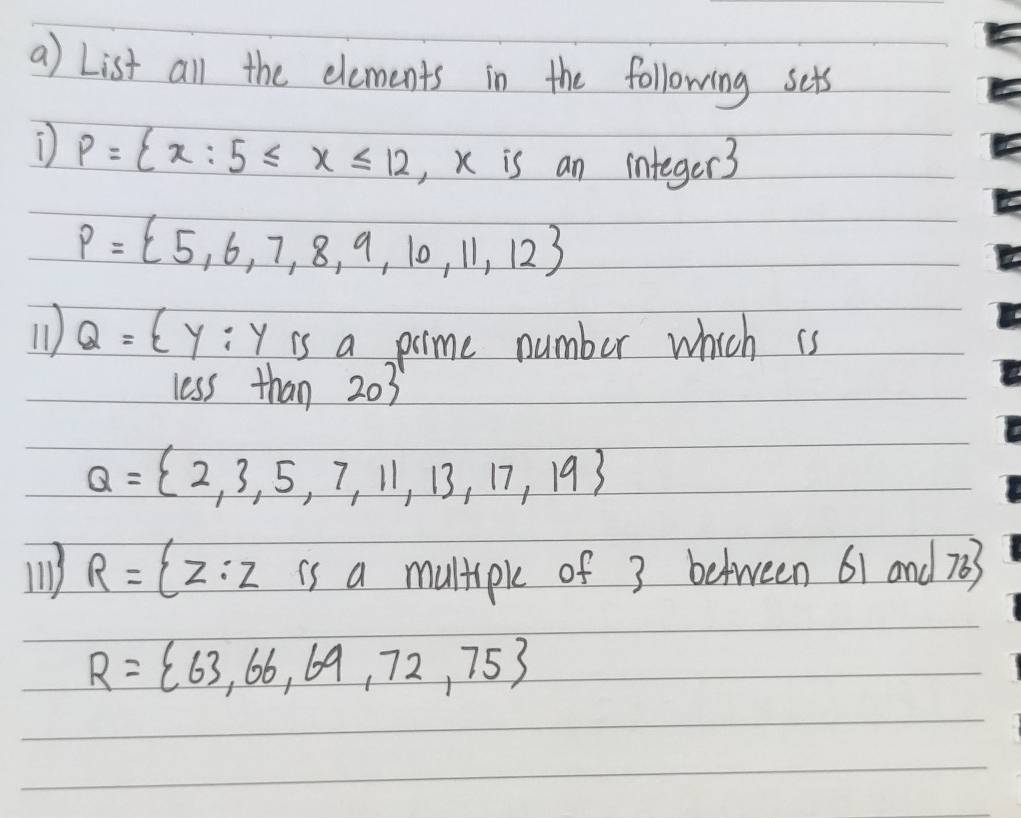 a) List all the elements in the following sets
i) P = { x : 5 ≤ x ≤ 12, x is an integer}
P = { 5, 6, 7, 8, 9, 10, 11, 12 }
ii) Q = { y : y is a prime number which is
less than 20}
Q = { 2, 3, 5, 7, 11, 13, 17, 19 }
iii) R = { z : z is a multiple of 3 between 61 and 76}
R = { 63, 66, 69, 72, 75 }